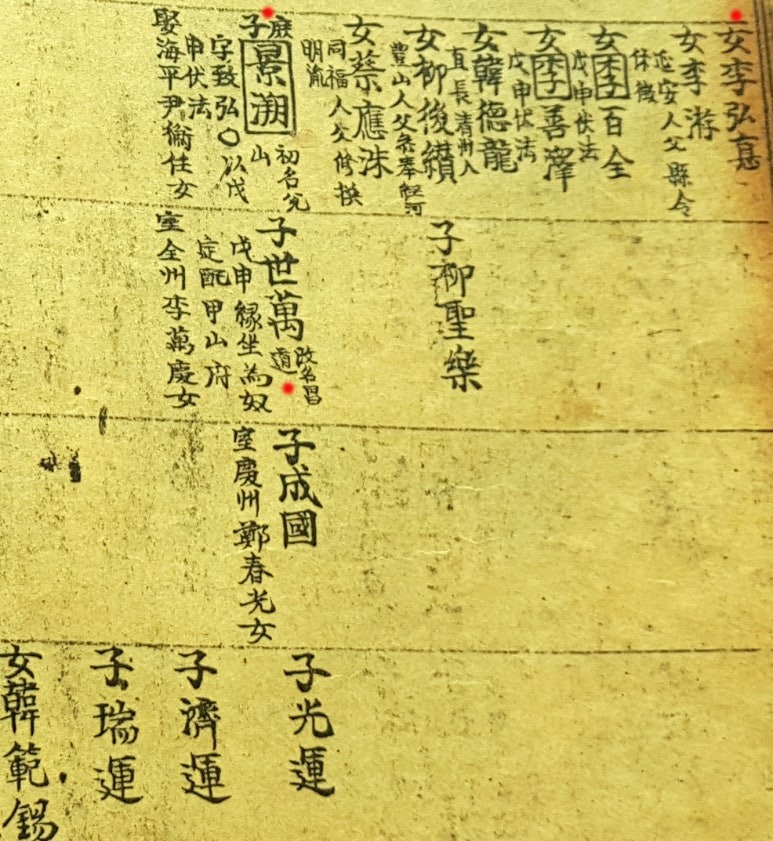 女李弘悳
女李游
延安人父縣令
休徵
女李百全
戊申伏法
女李善澤
戊申伏法
女韓德龍
直長淸州人
女柳後纉
豐山人父參奉經河
女蔡應洙
同福人父修撰
明胤
庶
子景溯
初名允
山
字致弘○以戊
申伏法
娶海平尹衡任女
子柳聖樂
子世萬
改名昌
道
戊申緣坐爲奴
定配甲山府
室全州李萬慶女
子成國
室慶州鄭春光女
子光運
子濟運
子瑞運
女韓範錫